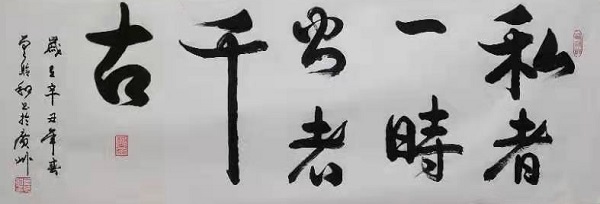 私者
一時
公者
千
古
歲在辛丑年春
書於廣州